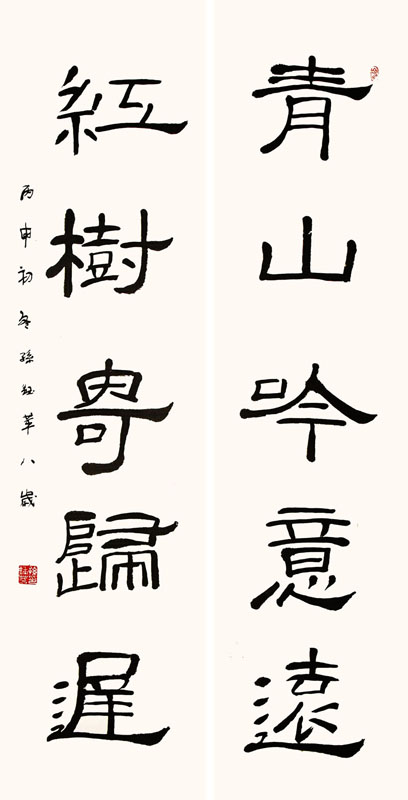 青山吟意遠
紅樹寄歸遲
丙申初冬孫華八歲